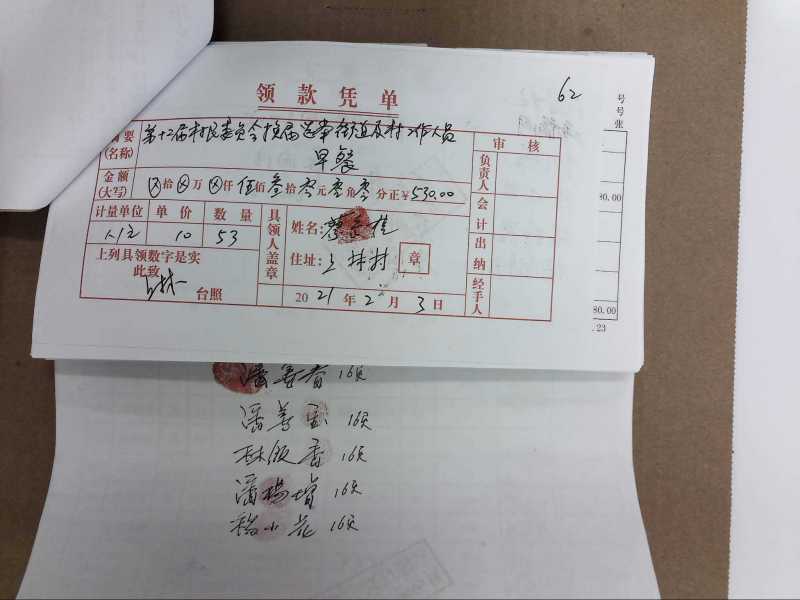 62
领款凭单
号
号
张
摘要(名称) 第十二届村民委员会换届选举街道及村工作人员
早餐
审核
金额(大写) ⊗拾⊗万⊗仟伍佰叁拾零元零角零分正¥530.00
负责人
80.00
计量单位 单价 数量
具领人盖章
姓名:
会计
10 53
住址:上林村 章
出纳
上列具领数字是实
此致
台照
经手人
2021年2月3日
80.00
.23
潘 香 16天
潘善 16天
林 香 16天
潘 增 16天
小花 16天